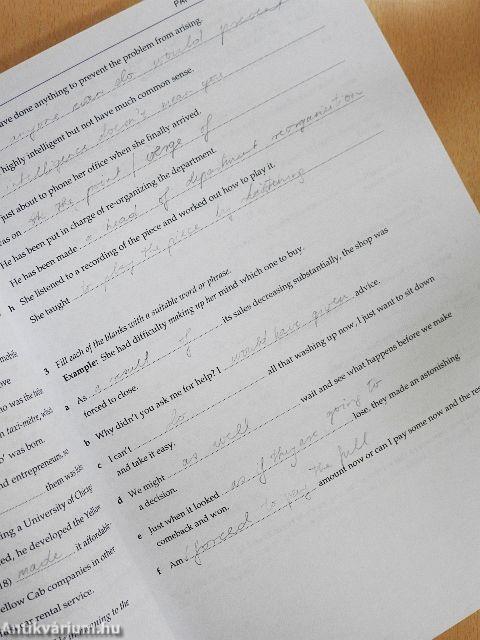 PAP
ave done anything to prevent the problem from arising.
anyone ever do would prevent
highly intelligent but not have much common sense.
intelligence doesn't mean you
just about to phone her office when she finally arrived.
as on the point / verge of
He has been put in charge of re-organizing the department.
He has been made a head of department reorganisation
h She listened to a recording of the piece and worked out how to play it.
She taught to play the piece by listening
3 Fill each of the blanks with a suitable word or phrase.
Example: She had difficulty making up her mind which one to buy.
a As a result of its sales decreasing substantially, the shop was
forced to close.
b Why didn't you ask me for help? I would have given advice.
c I can't do all that washing up now, I just want to sit down
and take it easy.
d We might as well wait and see what happens before we make
a decision.
e Just when it looked as if they are going to lose, they made an astonishing
comeback and won.
f Am I forced to pay the full amount now or can I pay some now and the res
who was the
taxi-mètre,
o' was born.
nd entrepreneurs, so
them was his
ing a University of
ed, he developed the Yellow
18) made it affordable
ellow Cab companies in other
car rental service.
Antikvárium.hu